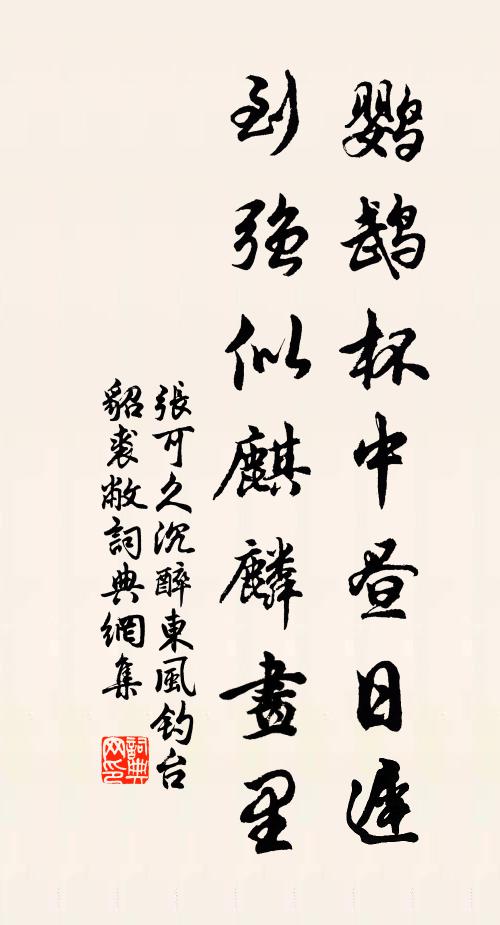 鸚鵡杯中昼日遲
到強似麒麟畫里
張可久沉醉東風釣台
貂裘敝詞典網集
詞典网印